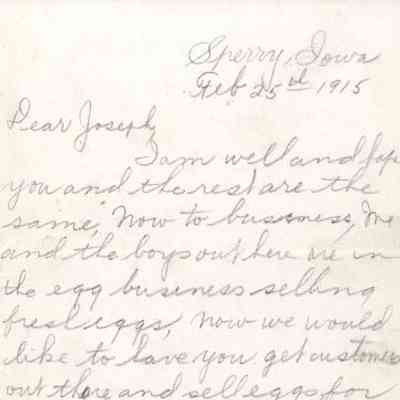 Sperry, Iowa
Feb 25th 1915
Dear Joseph,
I am well and hope
you and the rest are the
same, Now to bussness, me
and the boys out here are in
the egg business selling
fresh eggs, Now we would
like to have you get customers
out there and sell eggs for